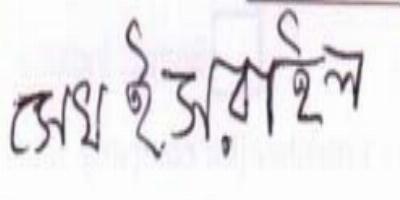 সেখ ইসরাইল